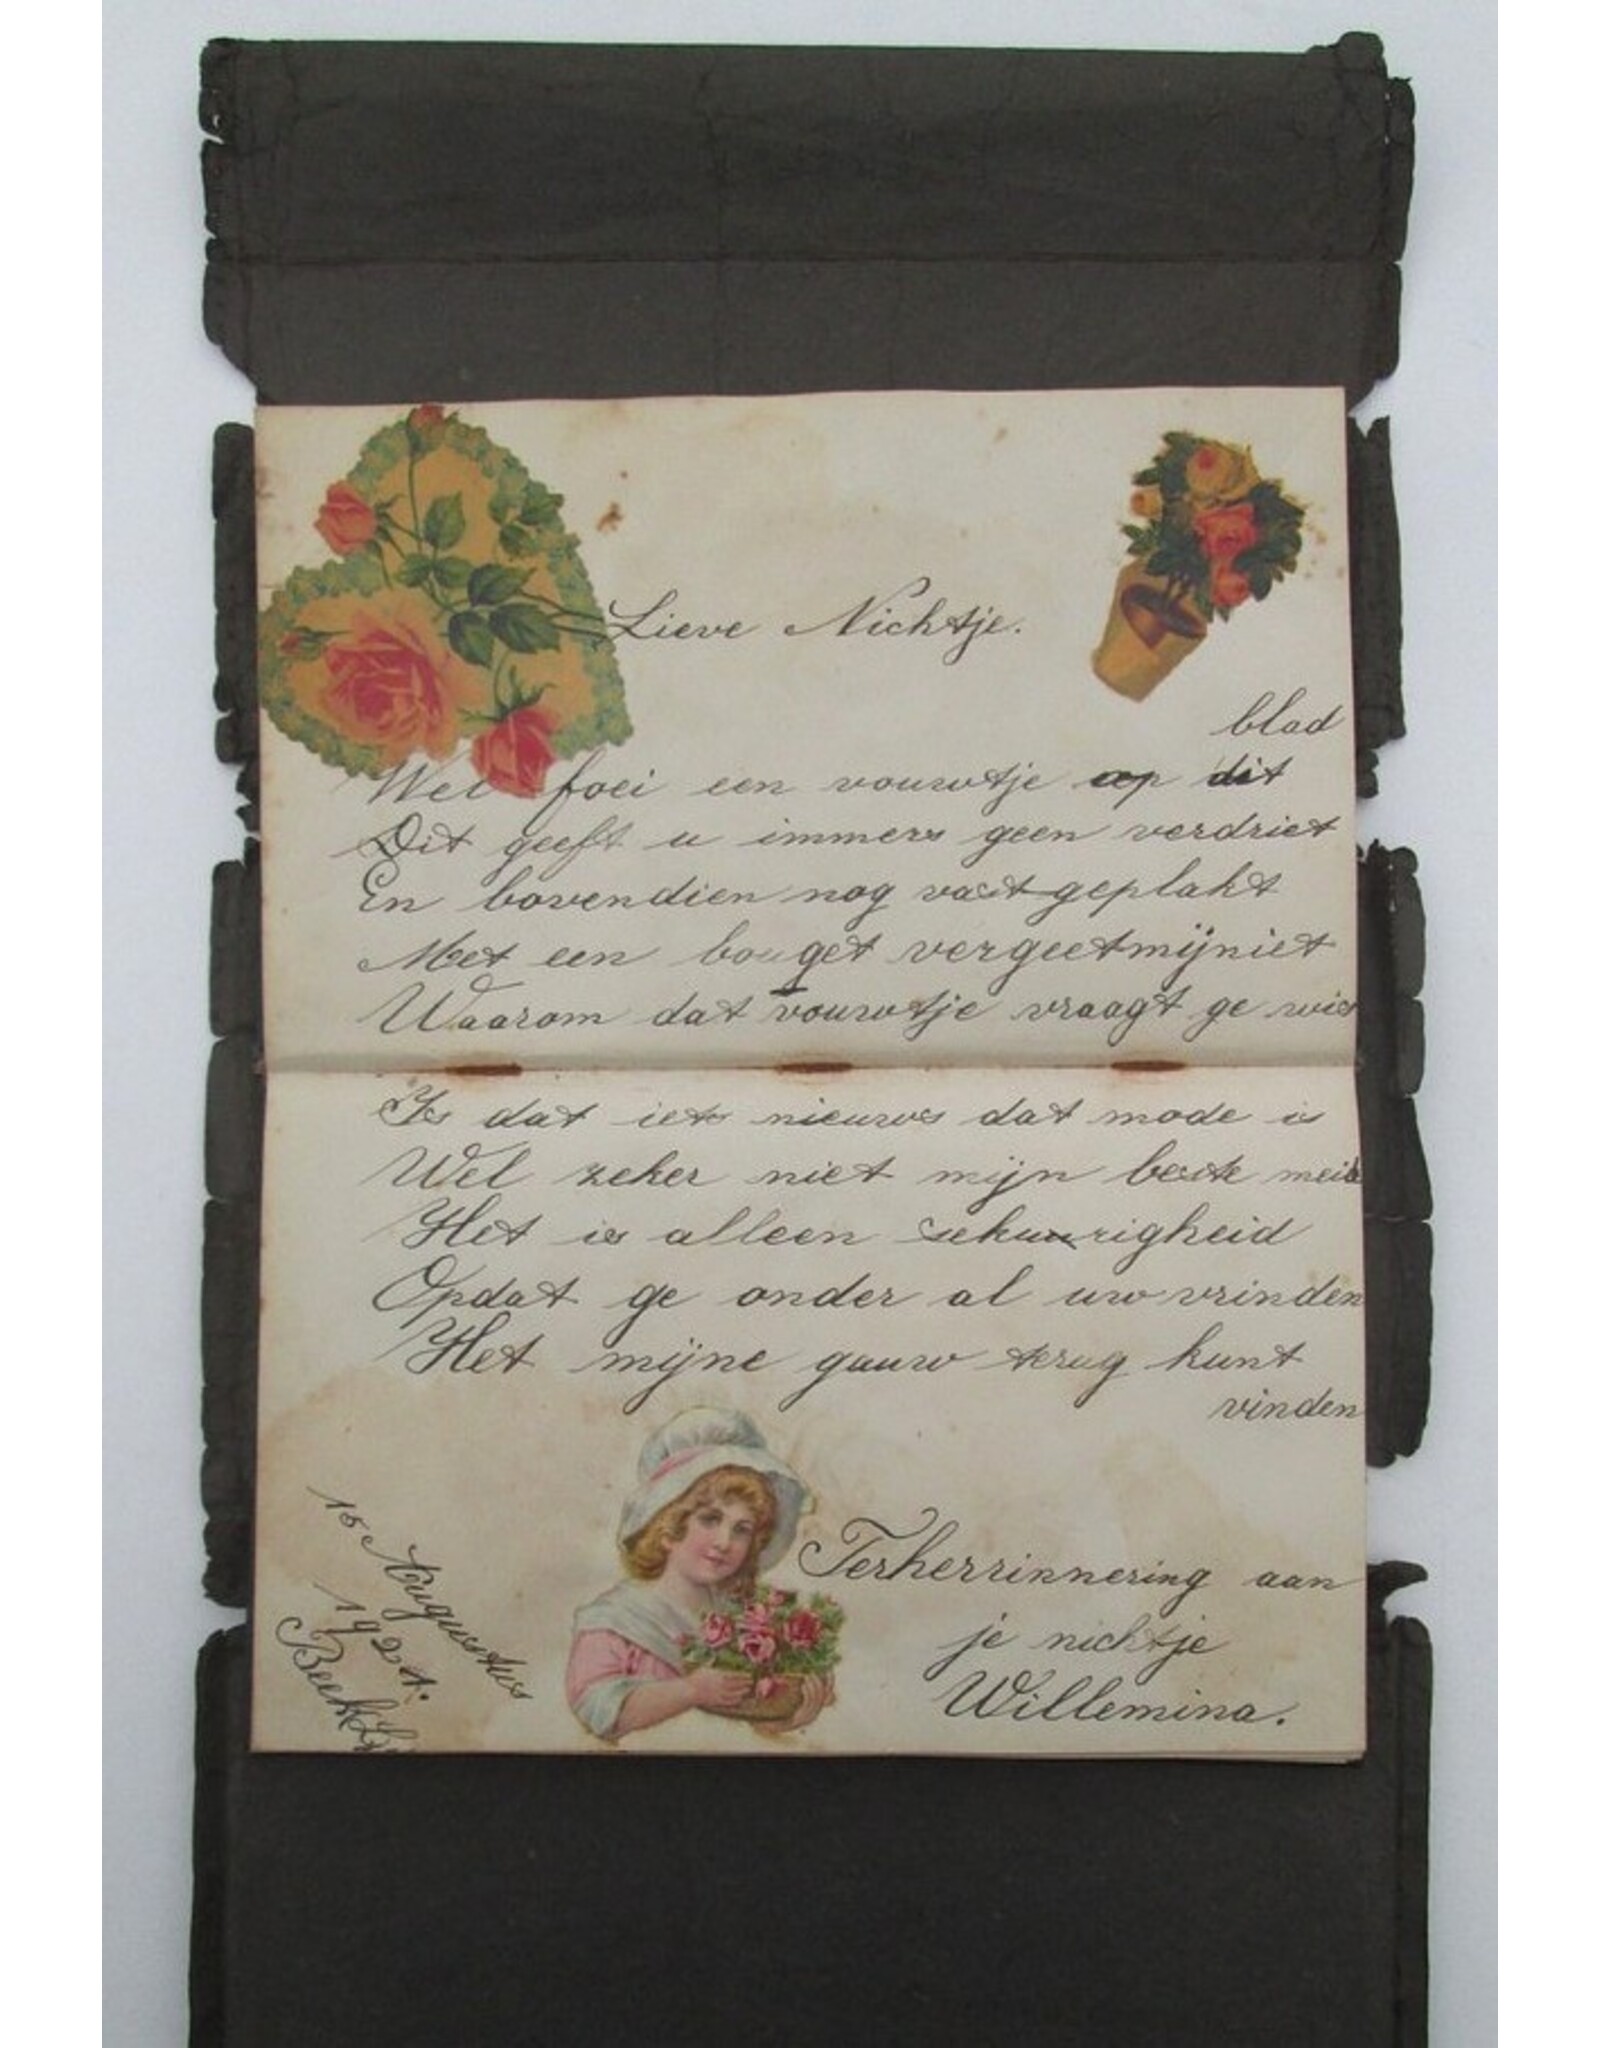 Lieve Nichtje.
blad
Wel foei een vouwtje op dit
Dit geeft u immers geen verdriet
En bovendien nog vast geplakt
Met een bouget vergeetmijniet
Waarom dat vouwtje vraagt ge wis
Is dat iets nieuws dat mode is
Wel zeker niet mijn beste meid
Het is alleen sekuurigheid
Opdat ge onder al uw vrinden
Het mijne gauw terug kunt
vinden
Terherrinnering aan
je nichtje
Willemina.
18 Augustus
1921.
Beek